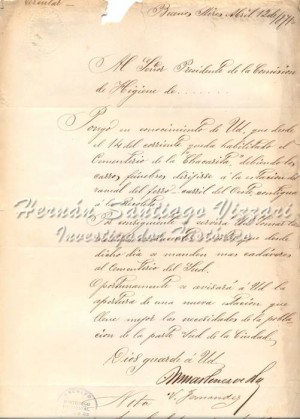 Circular —
Buenos Aires Abril 12 de 1871
Al Señor Presidente de la Comision
de Higiene de
Pongo en conocimiento de Ud. que desde
el 14 del corriente queda habilitado el
Cementerio de la "Chacarita" debiendo los
carros fúnebres dirijirse à la estacion del
ramal del ferro-carril del Oeste contigua
à la Recoleta
Por consiguiente se servirá Ud. tomar las
desde
dicho dia a manden mas cadàveres
al Cementerio del Sud.
Oportunamente se avisará à Ud la
apertura de una nueva estacion que
llene mejor las necesidades de la pobla-
cion de la parte Sud de la Ciudad.
Dios guarde à Ud.
Nota
Hernán Santiago Vizzari
Investigador Histórico